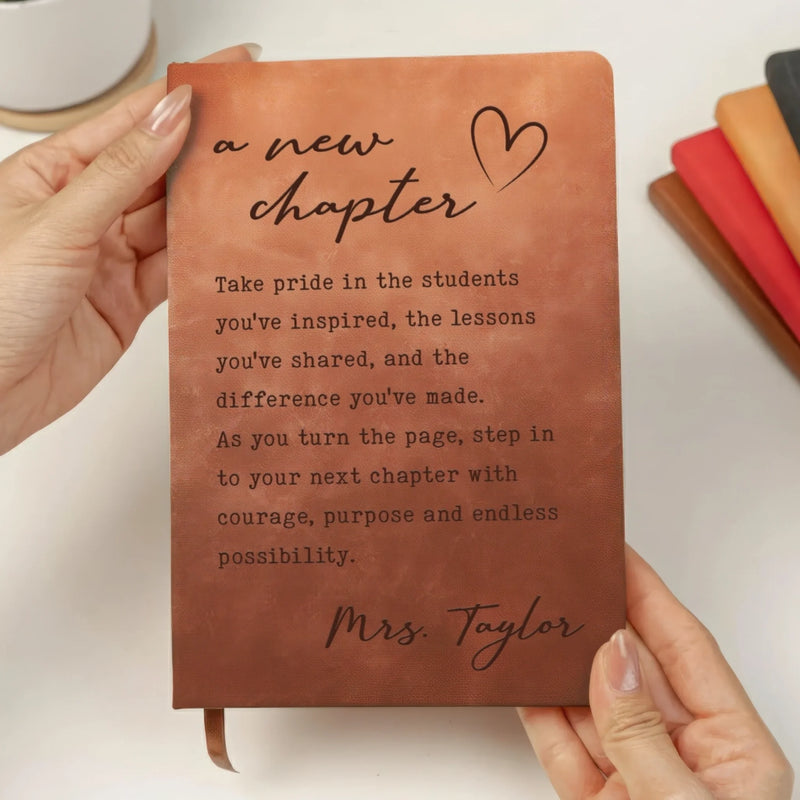 a new
chapter
Take pride in the students
you've inspired, the lessons
you've shared, and the
difference you've made.
As you turn the page, step in
to your next chapter with
courage, purpose and endless
possibility.
Mrs. Taylor